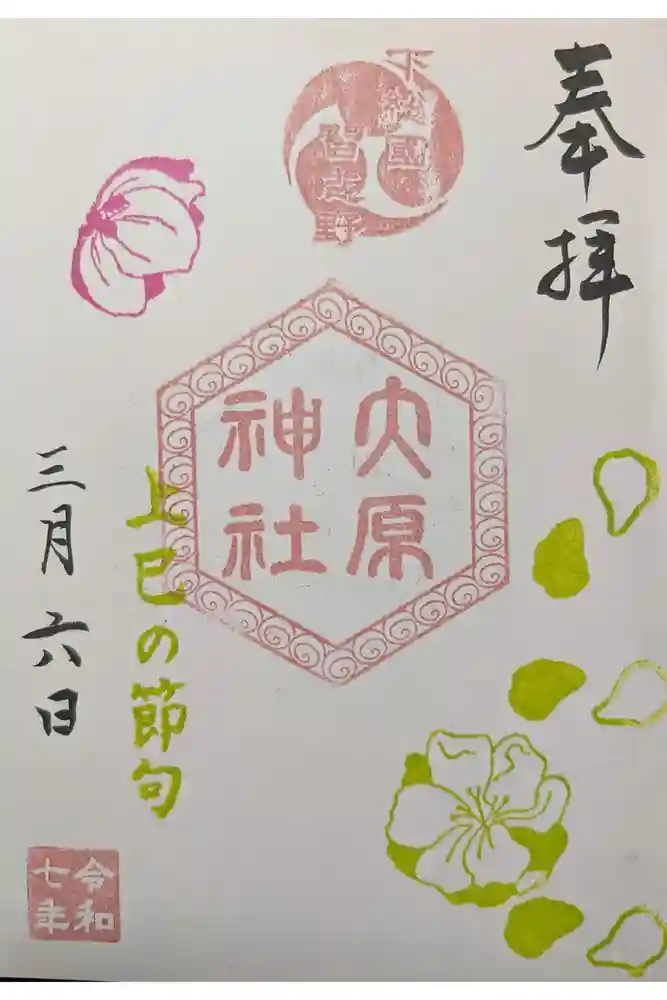 奉拝
下総国
習志野
大原
神社
上巳の節句
三月六日
令和
七年